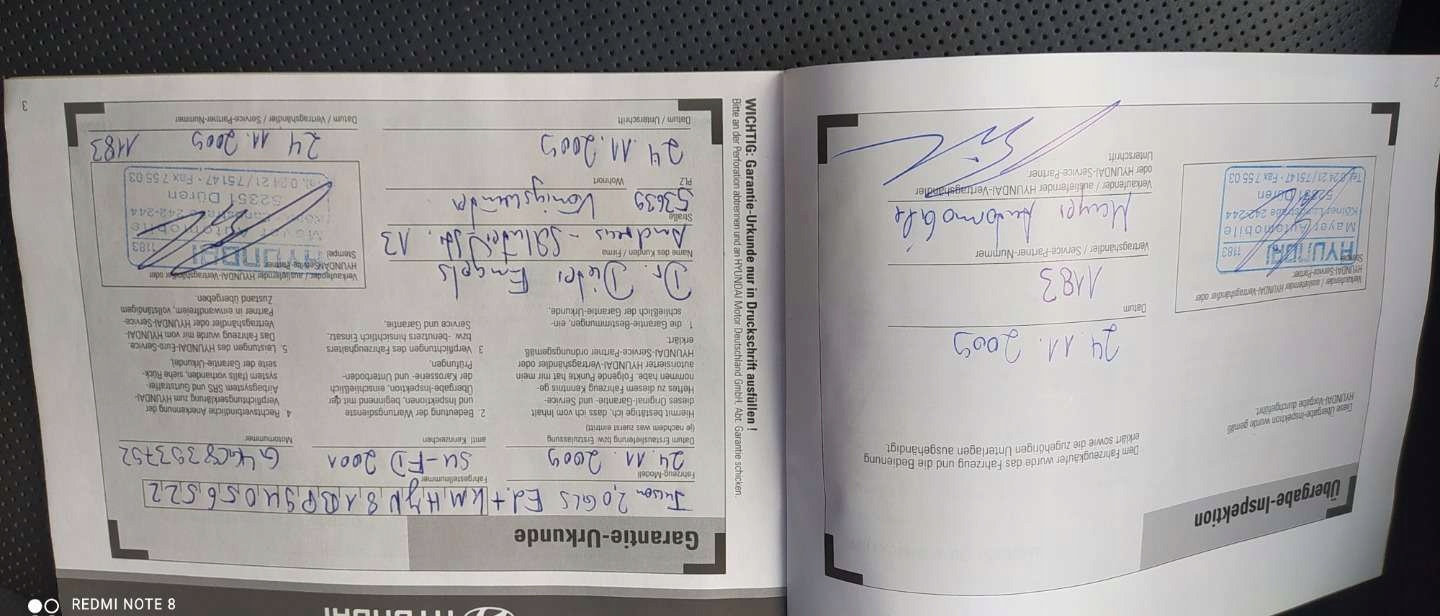 Übergabe-Inspektion
Dem Fahrzeugkäufer wurde das Fahrzeug und die Bedienung
erklärt sowie die zugehörigen Unterlagen ausgehändigt.
Diese Übergabe-Inspektion wurde gemäß
HYUNDAI-Vorgabe durchgeführt.
24.11.2009
Datum
1183
Vertragshändler / Service-Partner-Nummer
Mayer Automobile
Verkaufender / ausliefernder HYUNDAI-Vertragshändler
oder HYUNDAI-Service-Partner
Unterschrift
Verkaufender / ausliefernder HYUNDAI-Vertragshändler oder
HYUNDAI-Service-Partner
Stempel
HYUNDAI 1183
Mayer Automobile
Kölner Landstraße 242-244
52351 Düren
Tel. 0 24 21 / 75147 · Fax · 7 55 03
2
HYUNDAI
Garantie-Urkunde
Tucson 2,0 GLS Ed.+ KMHJN81BP9U056522
Fahrzeug-Modell Fahrgestellnummer
24.11.2009 SU-FD 2001 G4GC8393752
Datum Erstauslieferung bzw. Erstzulassung amtl. Kennzeichen Motornummer
(je nachdem was zuerst eintritt)
Hiermit bestätige ich, dass ich vom Inhalt
dieses Original-Garantie- und Service-
Heftes zu diesem Fahrzeug Kenntnis ge-
nommen habe. Folgende Punkte hat mir mein
autorisierter HYUNDAI-Vertragshändler oder
HYUNDAI-Service-Partner ordnungsgemäß
erklärt
1 die Garantie-Bestimmungen, ein-
schließlich der Garantie-Urkunde,
2. Bedeutung der Wartungsdienste
und Inspektionen, beginnend mit der
Übergabe-Inspektion, einschließlich
der Karosserie- und Unterboden-
Prüfungen,
3 Verpflichtungen des Fahrzeughalters
bzw. -benutzers hinsichtlich Einsatz,
Service und Garantie,
4 Rechtsverbindliche Anerkennung der
Verpflichtungserklärung zum HYUNDAI-
Airbagsystem SRS und Gurtstraffer-
system (falls vorhanden, siehe Rück-
seite der Garantie-Urkunde),
5. Leistungen des HYUNDAI-Euro-Service
Das Fahrzeug wurde mir vom HYUNDAI
Vertragshändler oder HYUNDAI-Service-
Partner in einwandfreiem, vollständigem
Zustand übergeben.
Dr. Dieter Engels
Name des Kunden / Firma
Andreas-Schlüter-Str. 13
Straße
53639 Königswinter
PLZ Wohnort
24.11.2009
Datum / Unterschrift
Verkaufender / ausliefernder HYUNDAI-Vertragshändler oder
HYUNDAI-Service-Partner
Stempel
HYUNDAI 1183
Mayer Automobile
Kölner Landstraße 242-244
52351 Düren
Tel. 0 24 21 / 75147 · Fax · 7 55 03
24.11.2009 1183
Datum / Vertragshändler / Service-Partner-Nummer
3
WICHTIG: Garantie-Urkunde nur in Druckschrift ausfüllen !
Bitte an der Perforation abtrennen und an HYUNDAI Motor Deutschland GmbH, Abt. Garantie schicken.
REDMI NOTE 8